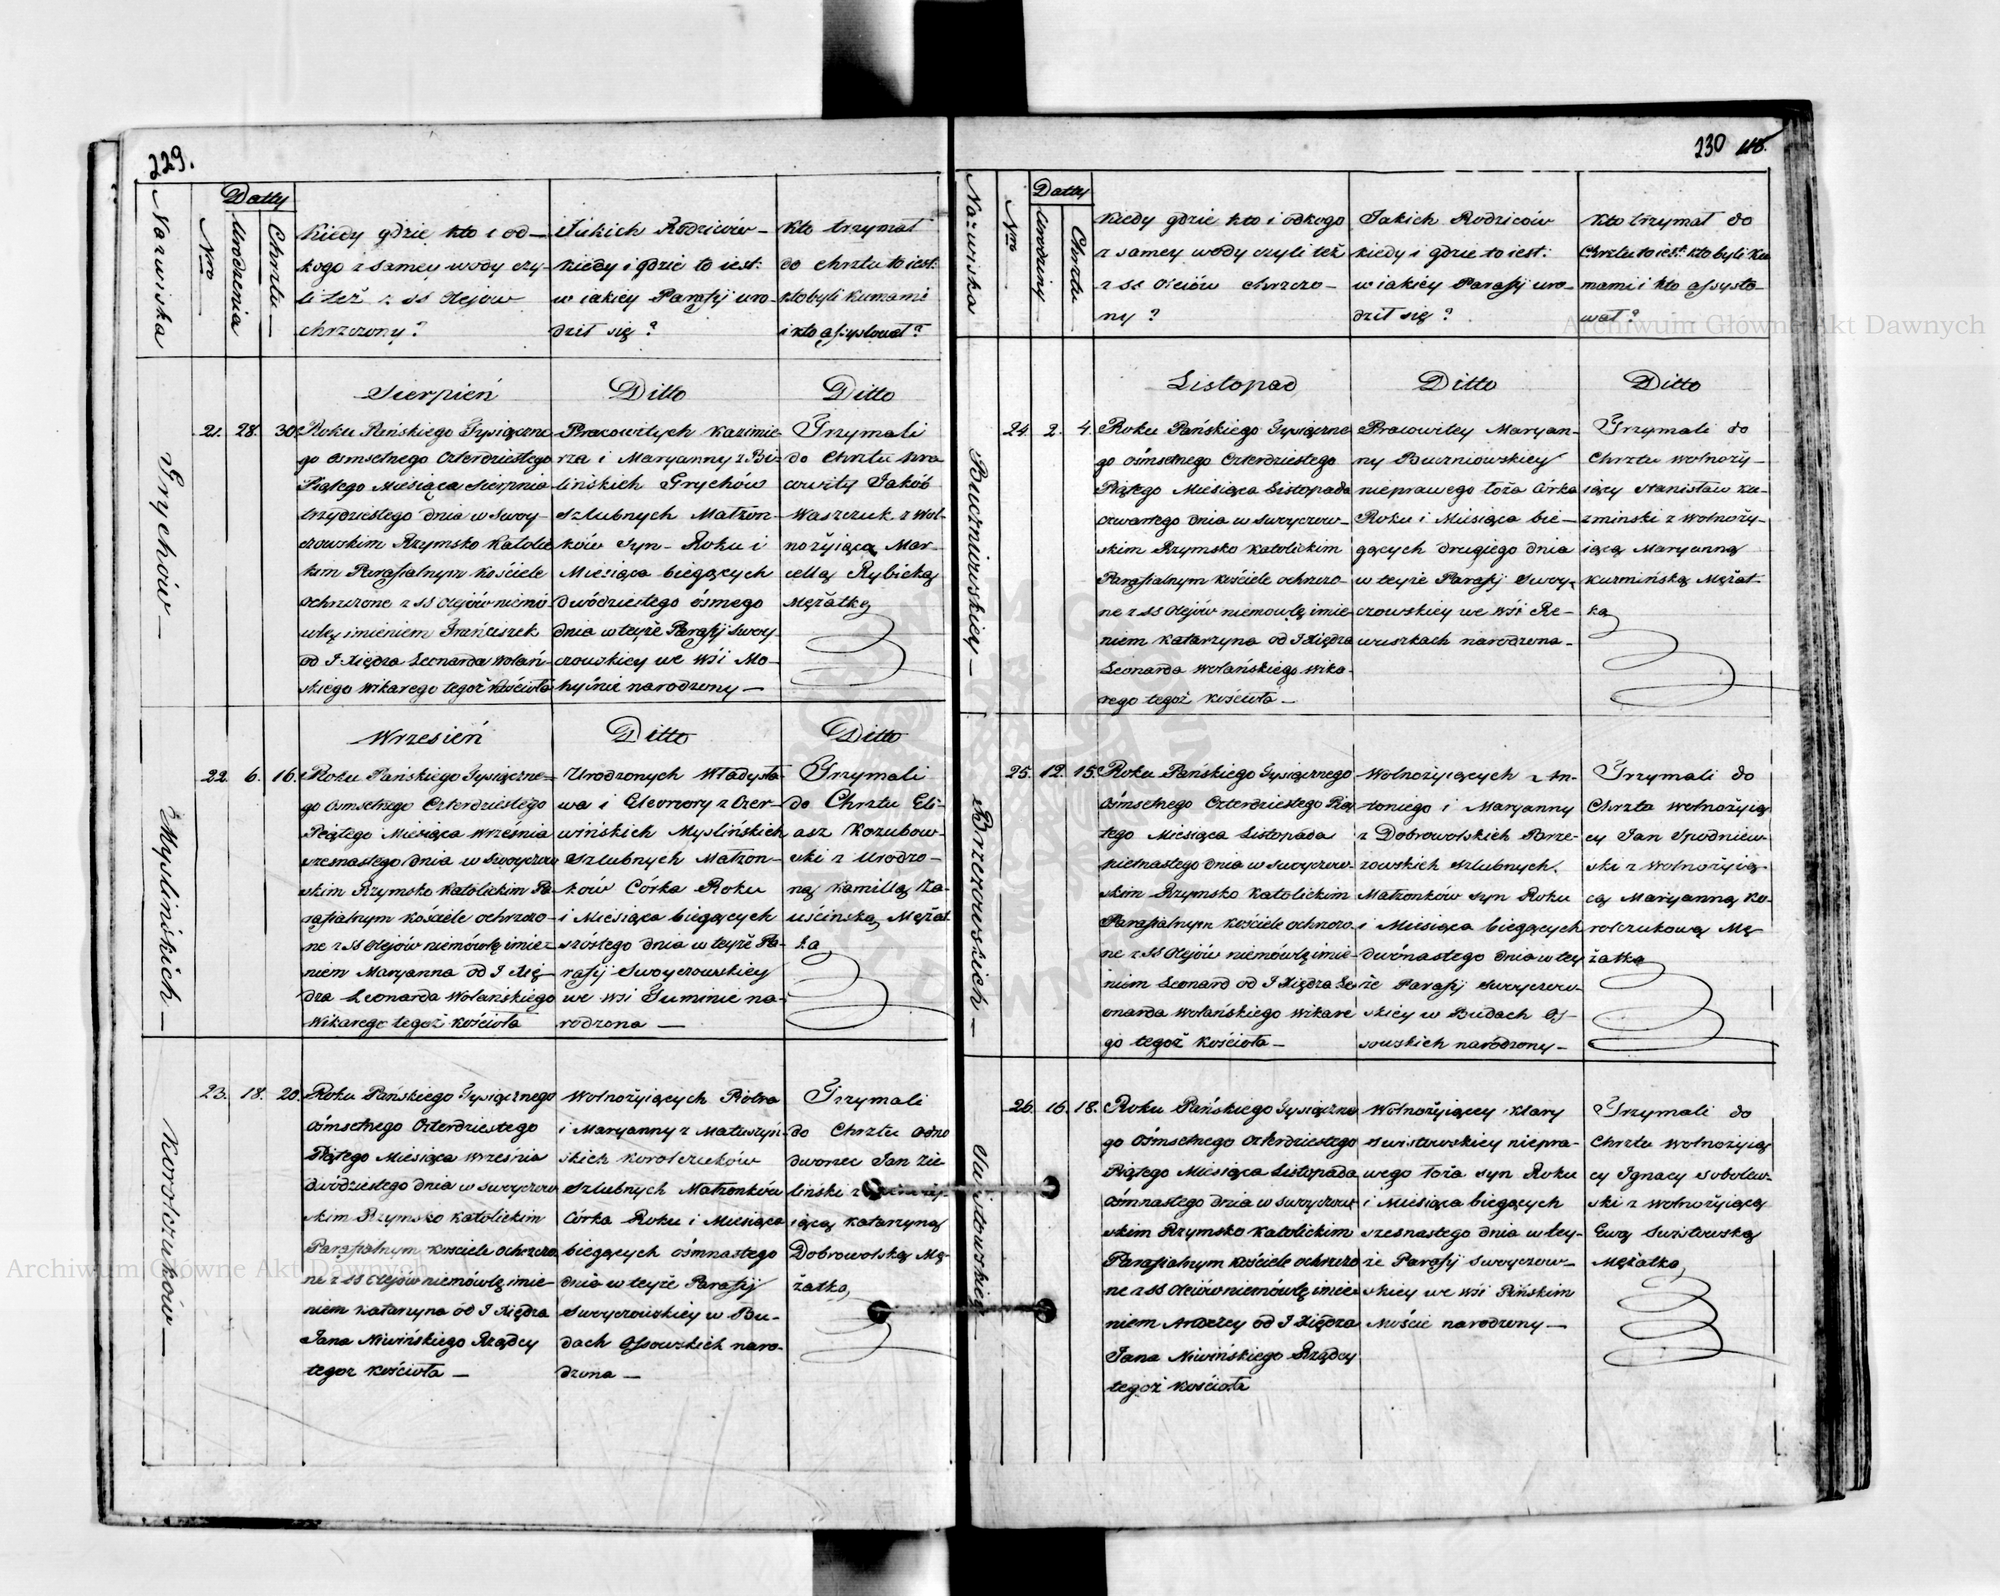 229.
Nazwiska
Nro
Datty
Urodzenia
Chrztu
Kiedy gdzie kto i od-
kogo z samey wody czy-
li też z SS Olejow
chrzczony?
Jakich Rodziców-
kiedy i gdzie to iest:
w iakiey Parafij uro-
dził się?
Kto trzymał
do chrztu to iest:
kto byli kumami
i kto assystował?
Sierpień
Ditto
Ditto
Grychów-
21.
28.
30.
Roku Pańskiego Tysiączne
go Osmsetnego Czterdziestego
Piątego Miesiąca Sierpnia
trzydziestego dnia w Swoy-
czowskim Rzymsko Katolic
kim Parafialnym Kościele
Ochrzczone z SS Olejów niemo
wlę imieniem Franciszek
od J Xiędza Leonarda Wolań-
skiego Wikarego tegoż Kościoła
Pracowitych Kazimie-
rza i Maryanny z Bi-
lińskich Grychów
Szlubnych Małżon-
ków Syn- Roku i
Miesiąca biegących
Dwódziestego ósmego
dnia w teyże Parafij Swoy
czowskiey we Wsi Mo-
hyśnie narodzony-
Trzymali
do Chrztu Pra
cowity Jakób
Waszczuk z Wol-
nożyiącą Mar-
cellą Rybicką
Mężatką
Wrzesień
Ditto
Ditto
Myslińskich-
22.
6.
16.
Roku Pańskiego Tysiączne-
go Osmsetnego Czterdziestego
Piątego Miesiąca Września
szesnastego dnia w Swoyczow
skim Rzymsko Katolickim Pa-
rafialnym Kościele ochrzczo-
ne z SS Olejów niemówlę imie-
niem Maryanna od J Xię-
dza Leonarda Wolańskiego
Wikarego tegoż Kościoła
Urodzonych Władysła-
wa i Eleonory z Czer-
wińskich Myslińskich
Szlubnych Małżon-
ków Córka Roku
i Miesiąca biegących
szóstego dnia w teyże Pa-
rafij Swoyczowskiey
we Wsi Tuminie na-
rodzona-
Trzymali
do Chrztu Eli-
asz Kozubow-
ski z Urodzo-
ną Kamillą
Mężat
ką
Korolczuków-
23.
18.
20.
Roku Pańskiego Tysiącznego
Ośmsetnego Czterdziestego
Piątego Miesiąca Września
Dwódziestego dnia w Swoyczow
skim Rzymsko Katolickim
Parafialnym Kosciele ochrzczo
ne z SS Olejów niemówlę imie-
niem Katarzyna od J Xiędza
Jana Niwińskiego Rządcy
tegoż Kościoła-
Wolnożyiących Piotra
i Maryanny z Matuszyń-
skich Korolczuków
Szlubnych Małżonków
Córka Roku i Miesiąca
biegących ośmnastego
dnia w teyże Parafij
Swoyczowskiey w Bu-
dach Ossowskich naro-
dzona-
Trzymali
do Chrztu Odno
dworiec Jan Zie-
liński z
iącą Katarzyną
Dobrowolską Mę-
żatką
230
Nazwiska
Nro
Datty
Urodziny
Chrztu
Kiedy gdzie kto i odkogo
z samey wody czyli też
z SS Oleiów chrzczo-
ny?
Jakich Rodziców
kiedy i gdzie to iest:
w iakiey Parafij uro-
dził się?
Kto trzymał do
Chrztu to iest: kto byli Ku
mami i kto assysto-
wał?
Listopad
Ditto
Ditto
Buczniowskiey-
24.
2.
4.
Roku Pańskiego Tysiączne
go Ośmsetnego Czterdziestego
Piątego Miesiąca Listopada
czwartego dnia w Swoyczow-
skim Rzymsko Katolickim
Parafialnym Kościele ochrzczo-
ne z SS Olejów niemowlę imie-
niem Katarzyna od J Xiędza
Leonarda Wolańskiego Wika-
rego tegoż Kościoła-
Pracowitey Maryan-
ny Buczniowskiey
nieprawego łoża Córka
Roku i Miesiąca bie-
gących drugiego dnia
w teyże Parafij Swoy-
czowskiey we Wsi Re-
wuszkach narodzona-
Trzymali do
Chrztu Wolnoży-
iący Stanisław Ku-
zminski z Wolnoży-
iącą Maryanną
Kuzmińską Mężat-
ką
Brzezowskich-
25.
12.
15.
Roku Pańskiego Tysiącznego
Ośmsetnego Czterdziestego Pią
tego Miesiąca Listopada
pietnastego dnia w Swoyczow-
skim Rzymsko Katolickim
Parafialnym Kościele ochrzczo
ne z SS Olejów niemówlę imie-
niem Leonard od J Xiędza Le
onarda Wolańskiego Wikare
go tegoż Kościoła-
Wolnożyiących An-
toniego i Maryanny
z Dobrowolskich Brze-
zowskich Szlubnych
Małżonków Syn Roku
i Miesiąca biegących
dwónastego dnia w tey
że Parafij Swoyczow-
skiey w Budach Os-
sowskich narodzony-
Trzymali do
Chrztu Wolnożyią
cy Jan Spodniew-
ski z Wolnożyią-
cą Maryanną Ko-
rolczukową Mę
żatką
Swistowskiey-
26.
16.
18.
Roku Pańskiego Tysiączne
go Ośmsetnego Czterdziestego
Piątego Miesiąca Listopada
Ośmnastego dnia w Swoyczow
skim Rzymsko Katolickim
Parafialnym Kościele ochrzczo
ne z SS Oleiów niemówlę imie
niem Andrzey od J Xiędza
Jana Niwińskiego Rządcy
tegoż Kościoła
Wolnożyiącey Klary
Swistowskiey niepra-
wego łoża Syn Roku
i Miesiąca biegących
szesnastego dnia w tey-
że Parafij Swoyczow-
skiey we Wsi Pińskim
Moście narodzony-
Trzymali do
Chrztu Wolnożyią
cy Ignacy Sobolew-
ski z Wolnożyiącą
Ewą Swistowską
Mężatką
Archiwum Główne Akt Dawnych
Archiwum Główne Akt Dawnych